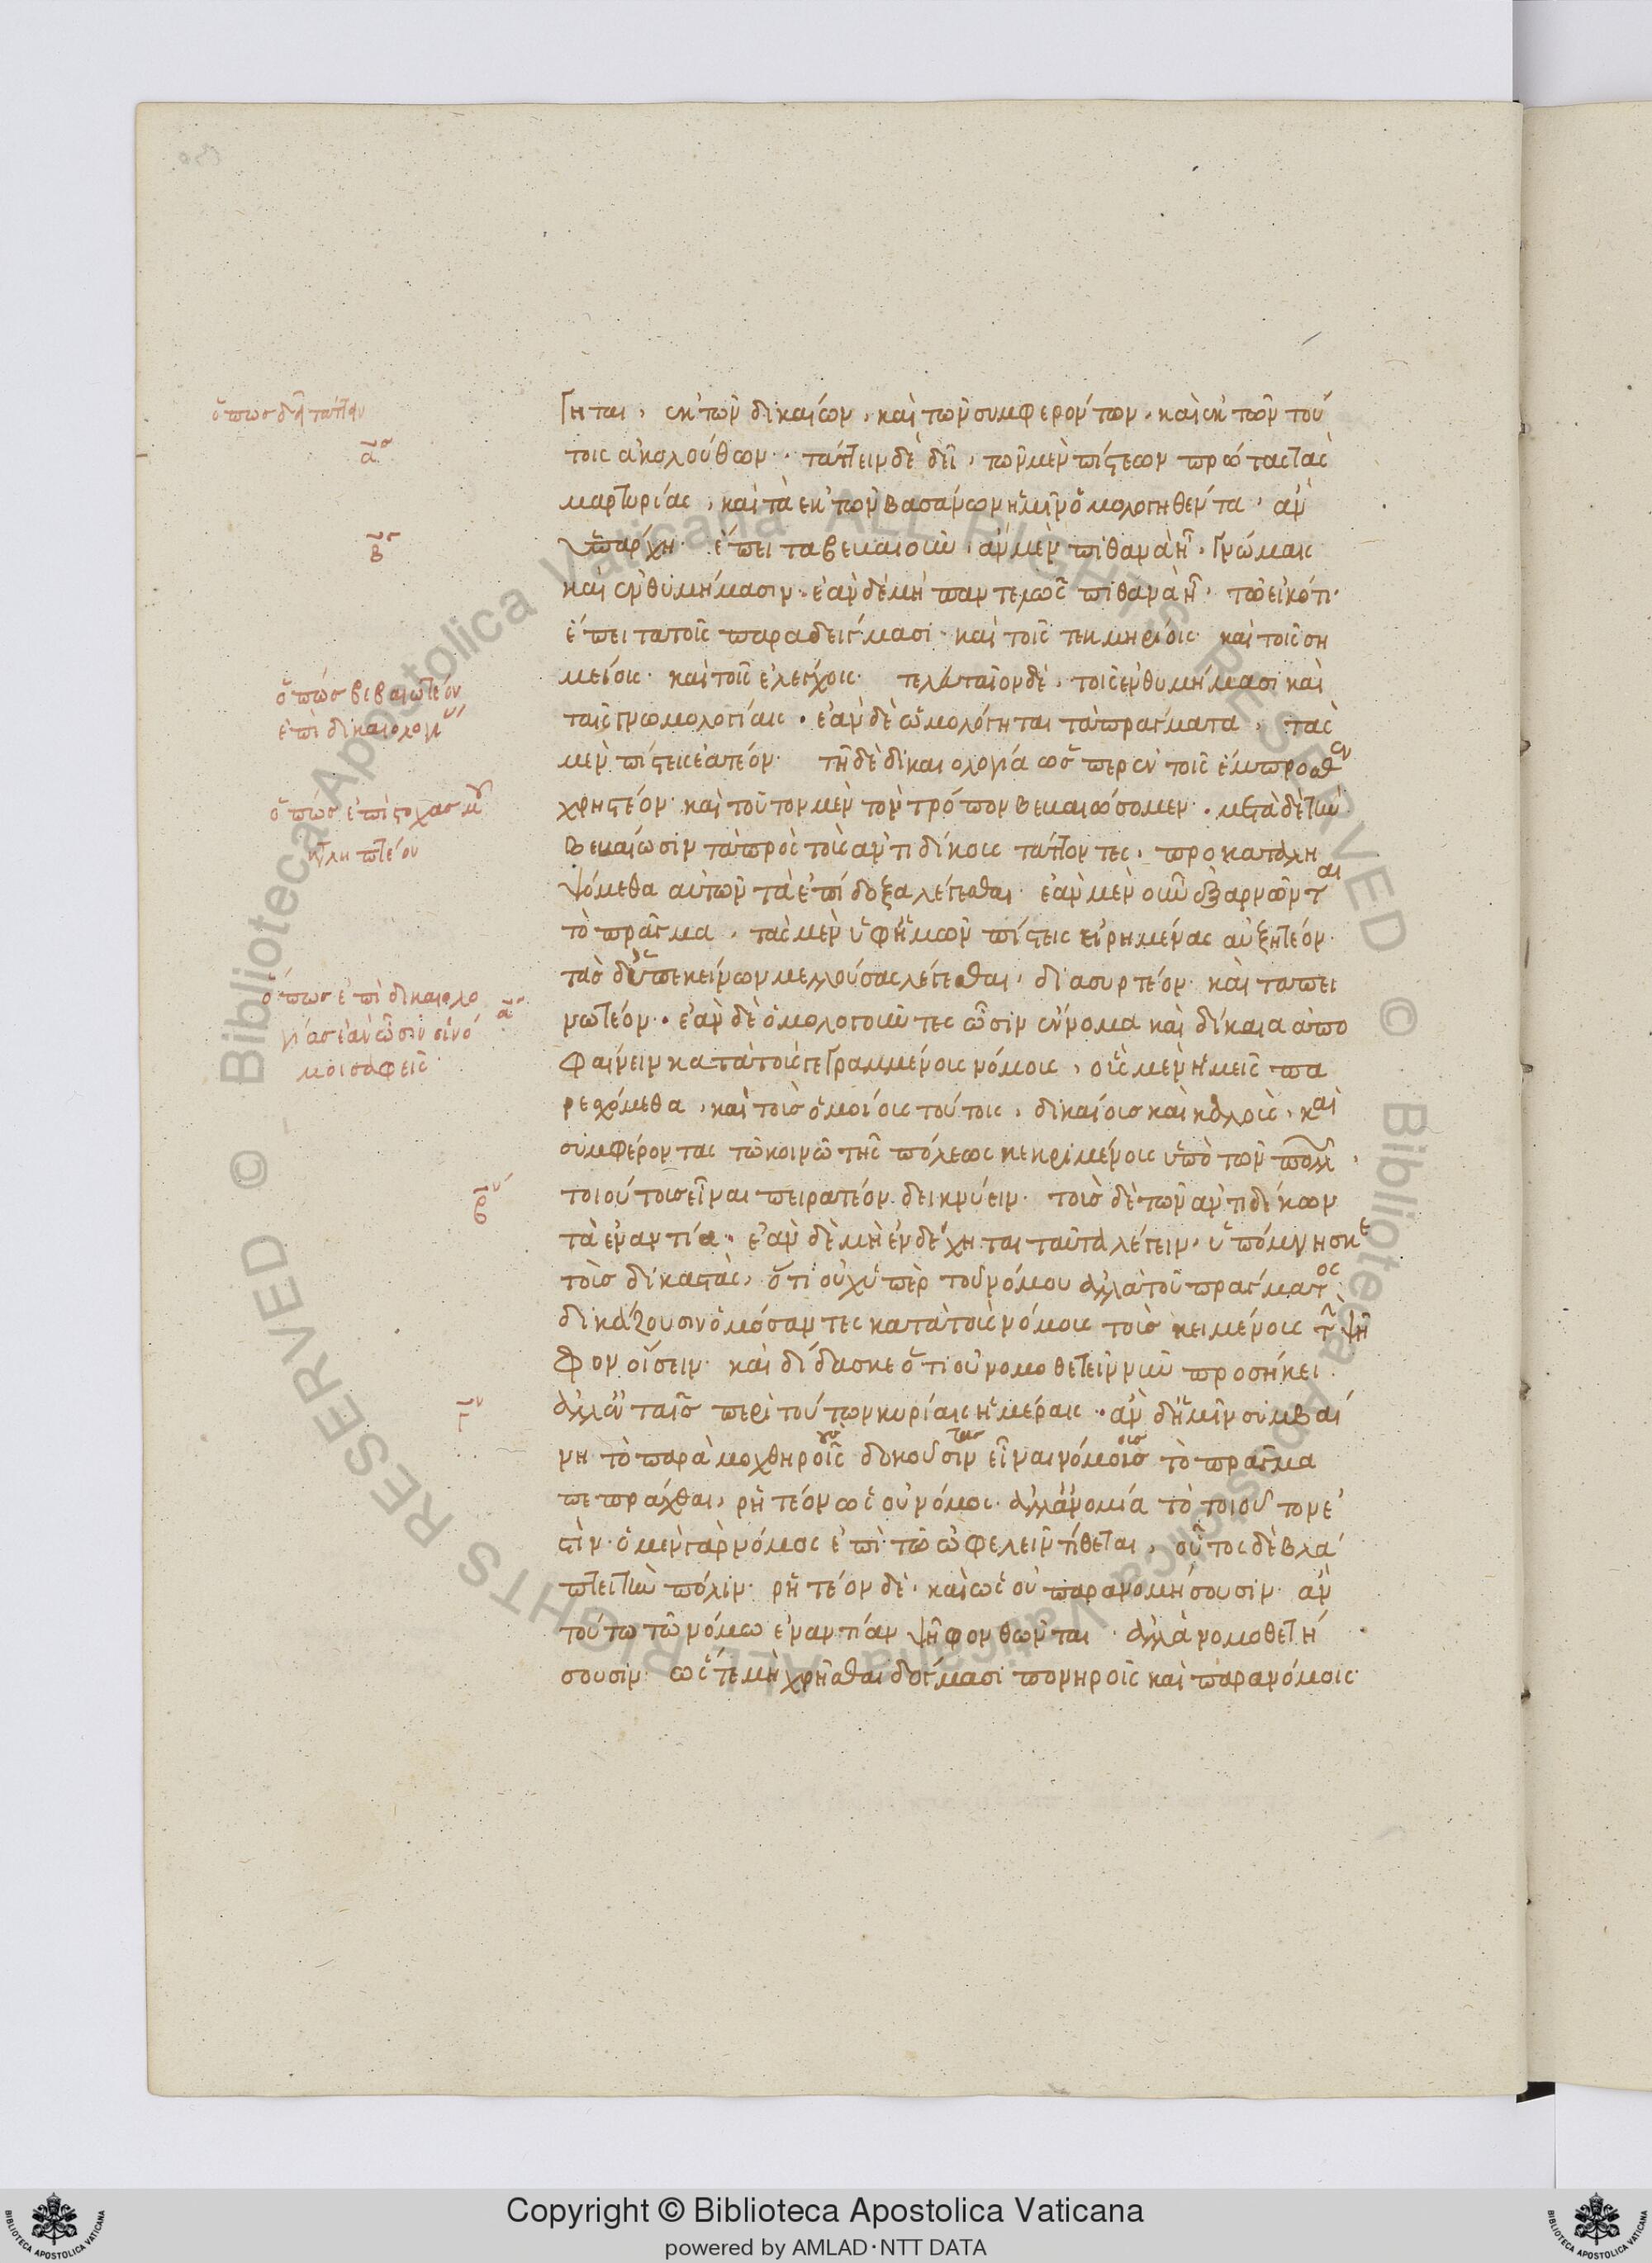 ὅπως δεῖ τάττειν
α
β
ὅπως βεβαιωτέον
ἐπὶ δικαιολογ
ὅπως ἐπὶ στοχασμ
ὅπως ἐπὶ δικαιολο
γίας ἐὰν ὦσιν οἱ νό
μοι σαφεῖς
α
β
γ
γηται, ἐκ τῶν δικαίων, καὶ τῶν συμφερόντων, καὶ ἐκ τῶν τού
τοις ἀκολούθων· τάττειν δὲ δεῖ, τῶν μὲν πίστεων πρῶτας τὰς
μαρτυρίας, καὶ τὰ ἐκ τῶν βασάνων ἡμῖν ὁμολογηθέντα, ἂν
ὑπάρχη· ἔπειτα βεβαιοῦν, ἂν μὲν πιθανὰ ᾖ, γνώμαις
καὶ ἐνθυμήμασιν· ἐὰν δὲ μὴ παντελῶς πιθανὰ ᾖ, τῶ εἰκότι·
ἔπειτα τοῖς παραδείγμασι· καὶ τοῖς τεκμηρίοις· καὶ τοῖς ση
μείοις· καὶ τοῖς ἐλέγχοις· τελευταῖον δὲ, τοῖς ἐνθυμήμασι καὶ
ταῖς γνωμολογίαις· ἐὰν δὲ ὡμολόγηται τὰ πράγματα, τὰς
μὲν πίστεις ἐατέον· τῆ δὲ δικαιολογία ὥσπερ ἐν τοῖς ἔμπροσθεν
χρηστέον· καὶ τοῦτον μὲν τὸν τρόπον βεβαιώσομεν· μετὰ δὲ τὴν
βεβαίωσιν τὰ πρὸς τοὺς ἀντιδίκους τάττοντες, προκαταλη
ψόμεθα αὐτῶν τὰ ἐπίδοξα λέγεσθαι· ἐὰν μὲν οὖν ἐξαρνῶνται
τὸ πρᾶγμα, τὰς μὲν ὑφ' ἡμῶν πίστεις εἰρημένας αὐξητέον·
τὰς δ' ὑπ' ἐκείνων μελλούσας λέγεσθαι, διασυρτέον· καὶ ταπει
νωτέον· ἐὰν δὲ ὁμολογοῦντες ὦσιν ἔννομα καὶ δίκαια ἀπο
φαίνειν κατὰ τοὺς γεγραμμένους νόμους, οὓς μὲν ἡμεῖς πα
ρεχόμεθα, καὶ τοὺς ὁμοίους τούτοις, δικαίους καὶ καλοὺς, καὶ
συμφέροντας τῶ κοινῶ τῆς πόλεως κεκριμένους ὑπὸ τῶν πολλ,
τοιούτους εἶναι πειρατέον δεικνύειν· τοὺς δὲ τῶν ἀντιδίκων
τὰ ἐναντία· ἐὰν δὲ μὴ ἐνδέχηται ταῦτα λέγειν, ὑπόμνησκε
τοὺς δικαστὰς, ὅτι οὐχ ὑπὲρ τοῦ νόμου ἀλλὰ τοῦ πράγματος
δικάζουσιν ὀμόσαντες κατὰ τοὺς νόμους τοὺς κειμένους τὴν ψῆ
φον οἴσειν· καὶ δίδασκε ὅτι οὐ νομοθετεῖν νῦν προσήκει
ἀλλ' ἐν ταῖς περὶ τούτων κυρίαις ἡμέραις· ἂν δ' ἡμῖν συμβαί
νη τὸ παρὰ μοχθηροῖς δοκοῦσιν εἶναι νόμοις τὸ πρᾶγμα
πεπράχθαι, ῥητέον ὡς οὐ νόμος ἀλλ' ἀνομία τὸ τοιοῦτον ἐ
στὶν· ὁ μὲν γὰρ νόμος ἐπὶ τῶ ὠφελεῖν τίθεται, οὗτος δὲ βλά
πτει τὴν πόλιν· ῥητέον δὲ· καὶ ὡς οὐ παρανομήσουσιν ἂν
τούτω τῶ νόμω ἐναντίαν ψῆφον θῶνται· ἀλλὰ νομοθετή
σουσιν ὥστε μὴ χρῆσθαι δόγμασι πονηροῖς καὶ παρανόμοις·
© Biblioteca Apostolica Vaticana ALL RIGHTS RESERVED
© Biblioteca Apostolica Vaticana ALL RIGHTS RESERVED
Copyright © Biblioteca Apostolica Vaticana
powered by AMLAD·NTT DATA
BIBLIOTECA APOSTOLICA VATICANA
BIBLIOTECA APOSTOLICA VATICANA